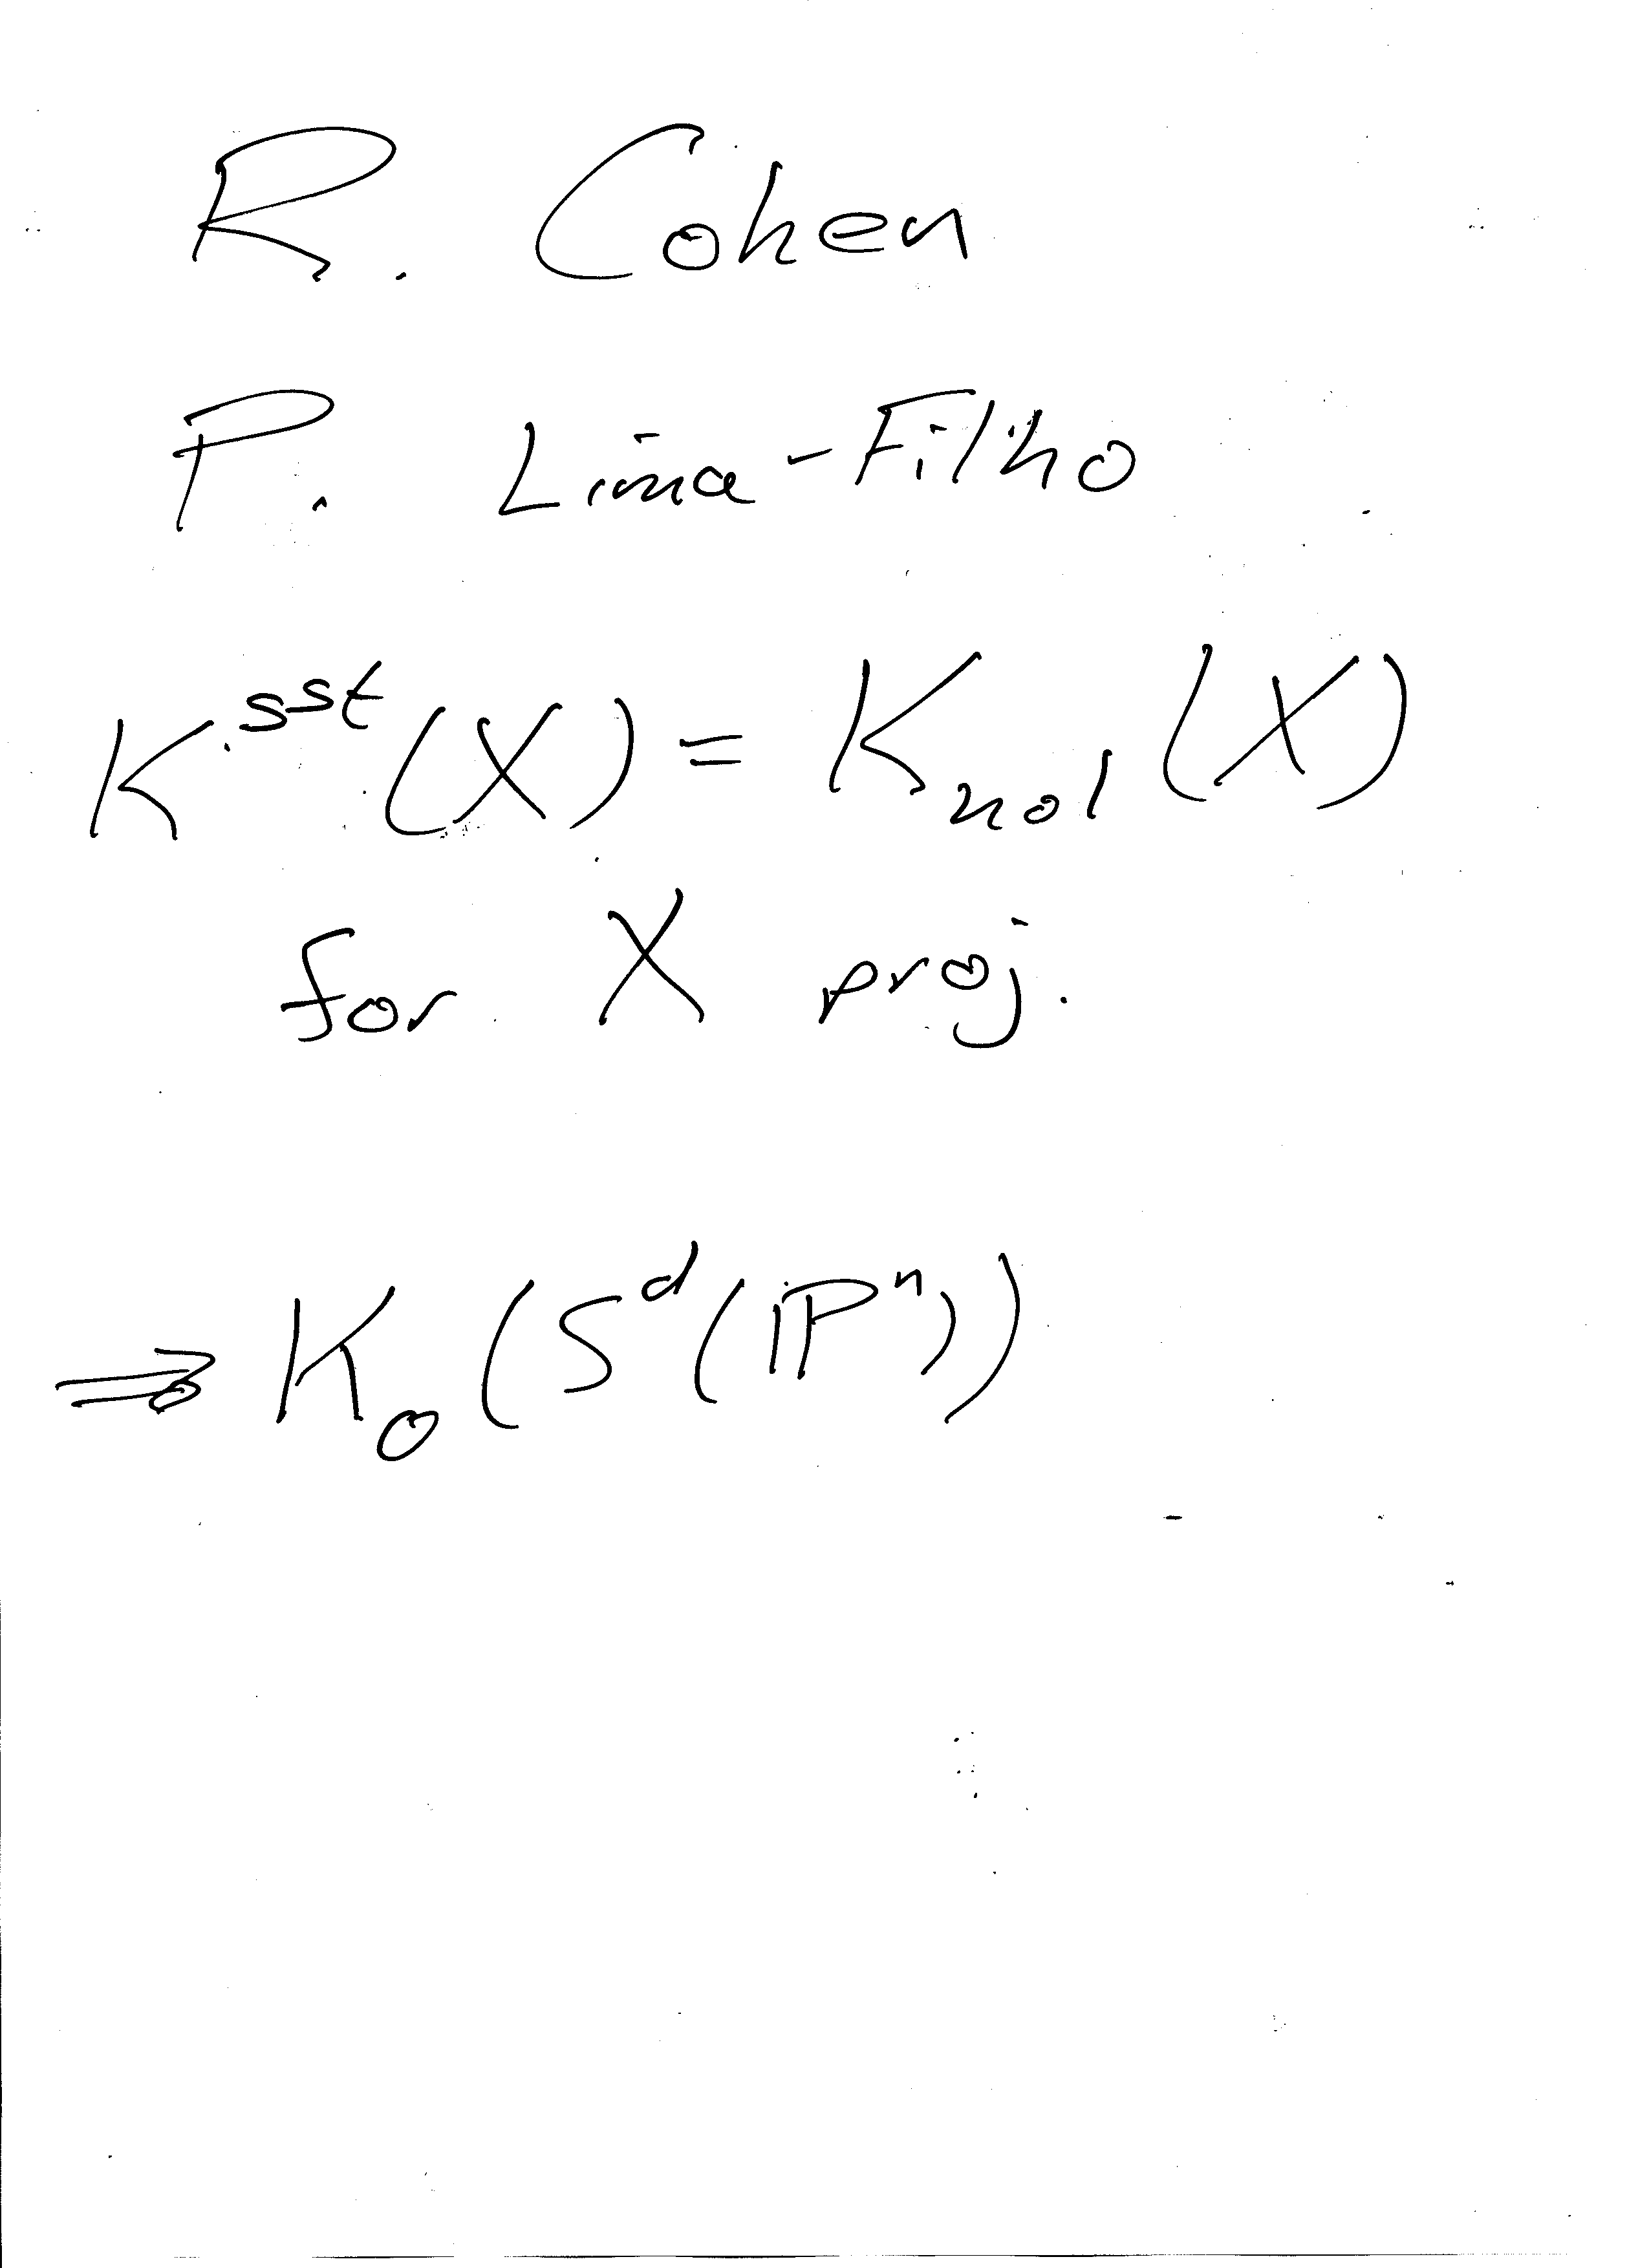 R. Cohen
P. Lima-Filho
K^{sst}(X) = K_{hol}(X)
for X proj.
⇒ K_0(S^d(ℙ^n))